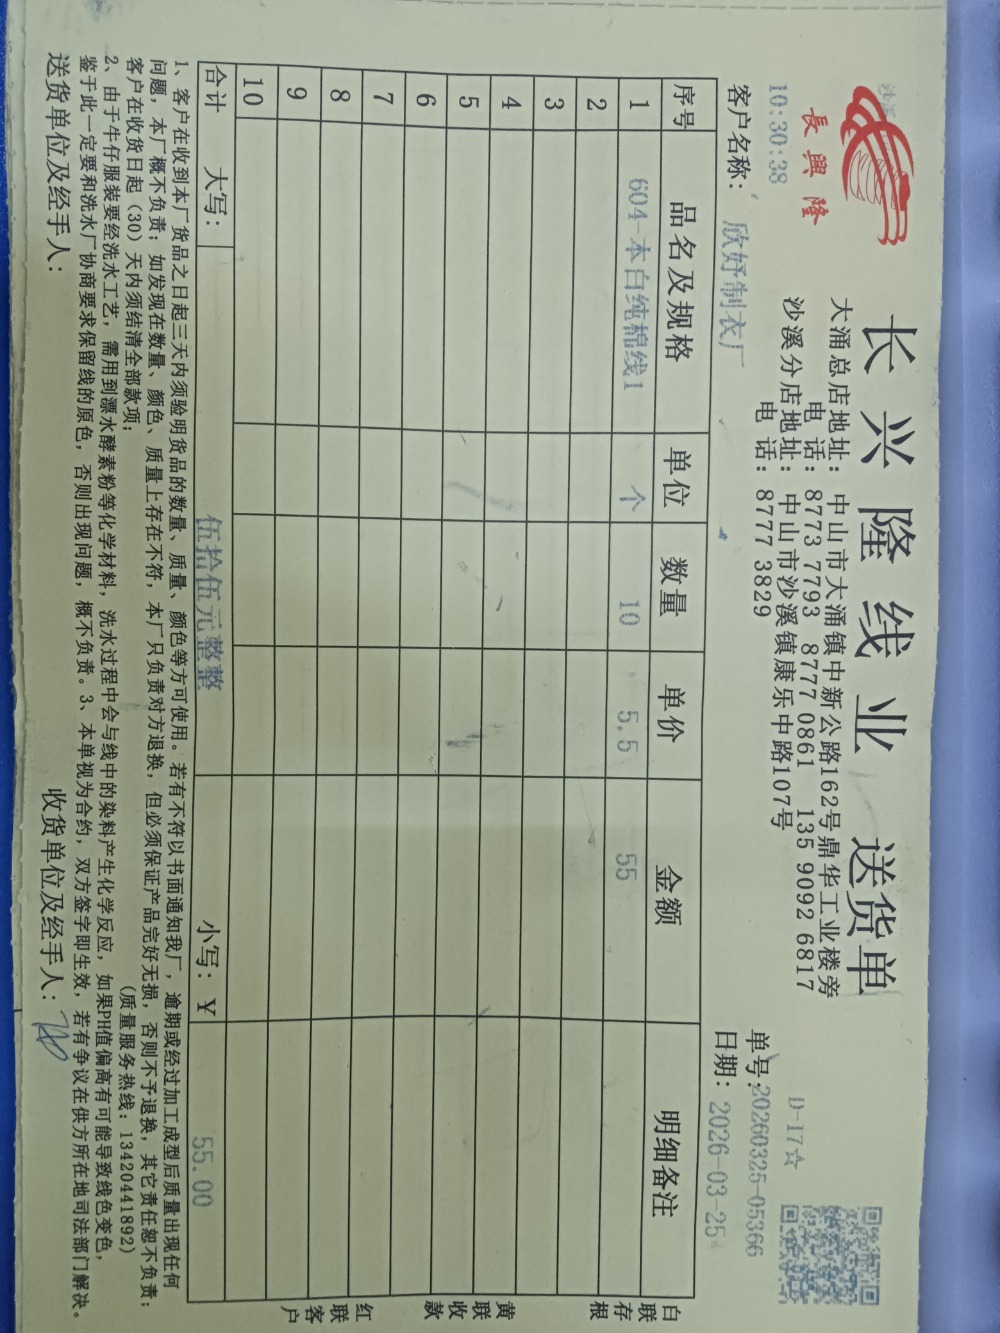 长兴隆线业 送货单
長興隆
沙溪
10:30:38
大涌总店地址：中山市大涌镇中新公路162号鼎华工业楼旁
电话：8773 7793 8777 0861 135 9092 6817
沙溪分店地址：中山市沙溪镇康乐中路107号
电话：8777 3829
D-17☆
单号:20260325-05366
客户名称：欣妤制衣厂
日期：2026-03-25
序号 品名及规格 单位 数量 单价 金额 明细备注
1 604-本白纯棉线1 个 10 5.5 55
2
3
4
5
6
7
8
9
10
合计 大写： 伍拾伍元整整 小写：¥ 55.00
白联存根
黄联收款
红联客户
1、客户在收到本厂货品之日起三天内须验明货品的数量、质量、颜色等方可使用。若有不符以书面通知我厂，逾期或经过加工成型后质量出现任何
问题，本厂概不负责；如发现在数量、颜色、质量上存在不符，本厂只负责对方退换，但必须保证产品完好无损，否则不予退换，其它责任恕不负责；
客户在收货日起（30）天内须结清全部款项； （质量服务热线：13420441892）
2、由于牛仔服装要经洗水工艺，需用到漂水酵素粉等化学材料，洗水过程中会与线中的染料产生化学反应，如果PH值偏高有可能导致线色变色，
鉴于此一定要和洗水厂协商要求保留线的原色，否则出现问题，概不负责。3、本单视为合约，双方签字即生效，若有争议在供方所在地司法部门解决。
送货单位及经手人： 收货单位及经手人：